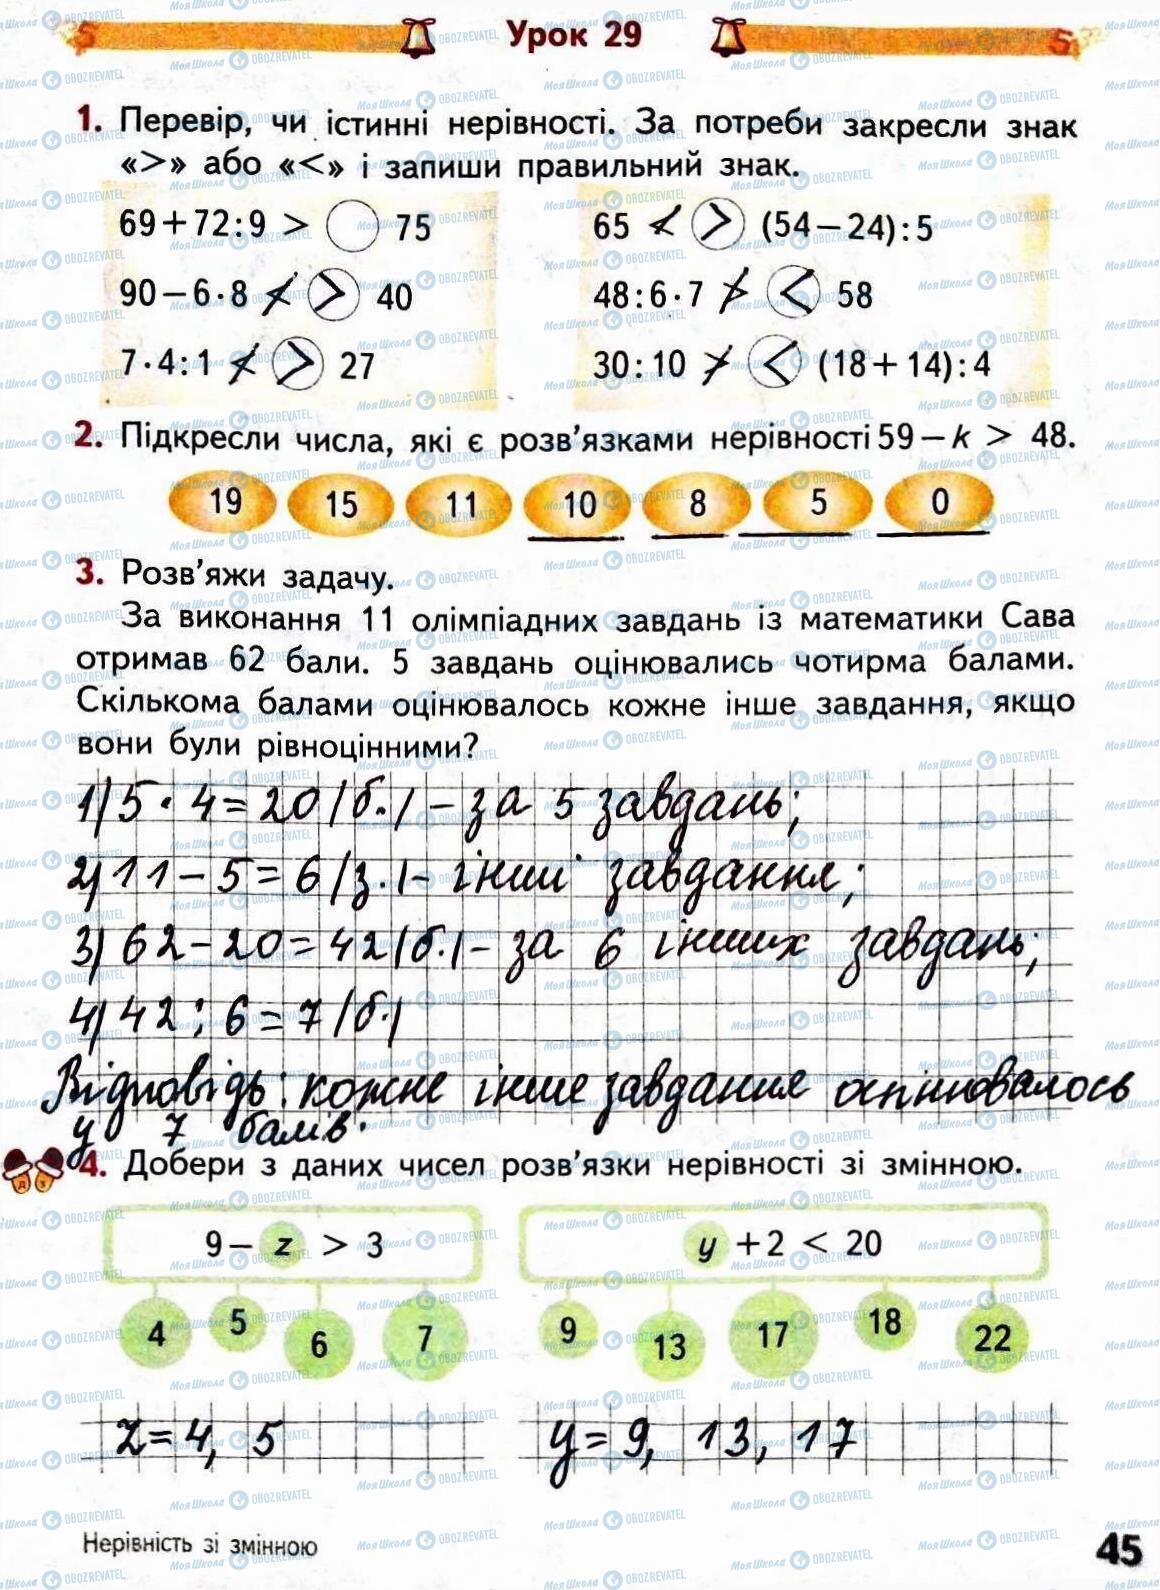 Урок 29
1. Перевір, чи істинні нерівності. За потреби закресли знак
«>» або «<» і запиши правильний знак.
69+72:9 > 75
65 < > (54-24):5
90-6·8 < > 40
48:6·7 > < 58
7·4:1 < > 27
30:10 > < (18+14):4
2. Підкресли числа, які є розв'язками нерівності 59-k > 48.
19 15 11 10 8 5 0
3. Розв'яжи задачу.
За виконання 11 олімпіадних завдань із математики Сава
отримав 62 бали. 5 завдань оцінювались чотирма балами.
Скількома балами оцінювалось кожне інше завдання, якщо
вони були рівноцінними?
1) 5 · 4 = 20 (б.) - за 5 завдань;
2) 11 - 5 = 6 (з.) - інші завдання;
3) 62 - 20 = 42 (б.) - за 6 інших завдань;
4) 42 : 6 = 7 (б.)
Відповідь: кожне інше завдання оцінювалось
у 7 балів.
4. Добери з даних чисел розв'язки нерівності зі змінною.
9- z > 3
y +2 < 20
4 5 6 7
9 13 17 18 22
z = 4, 5
y = 9, 13, 17
Нерівність зі змінною
45